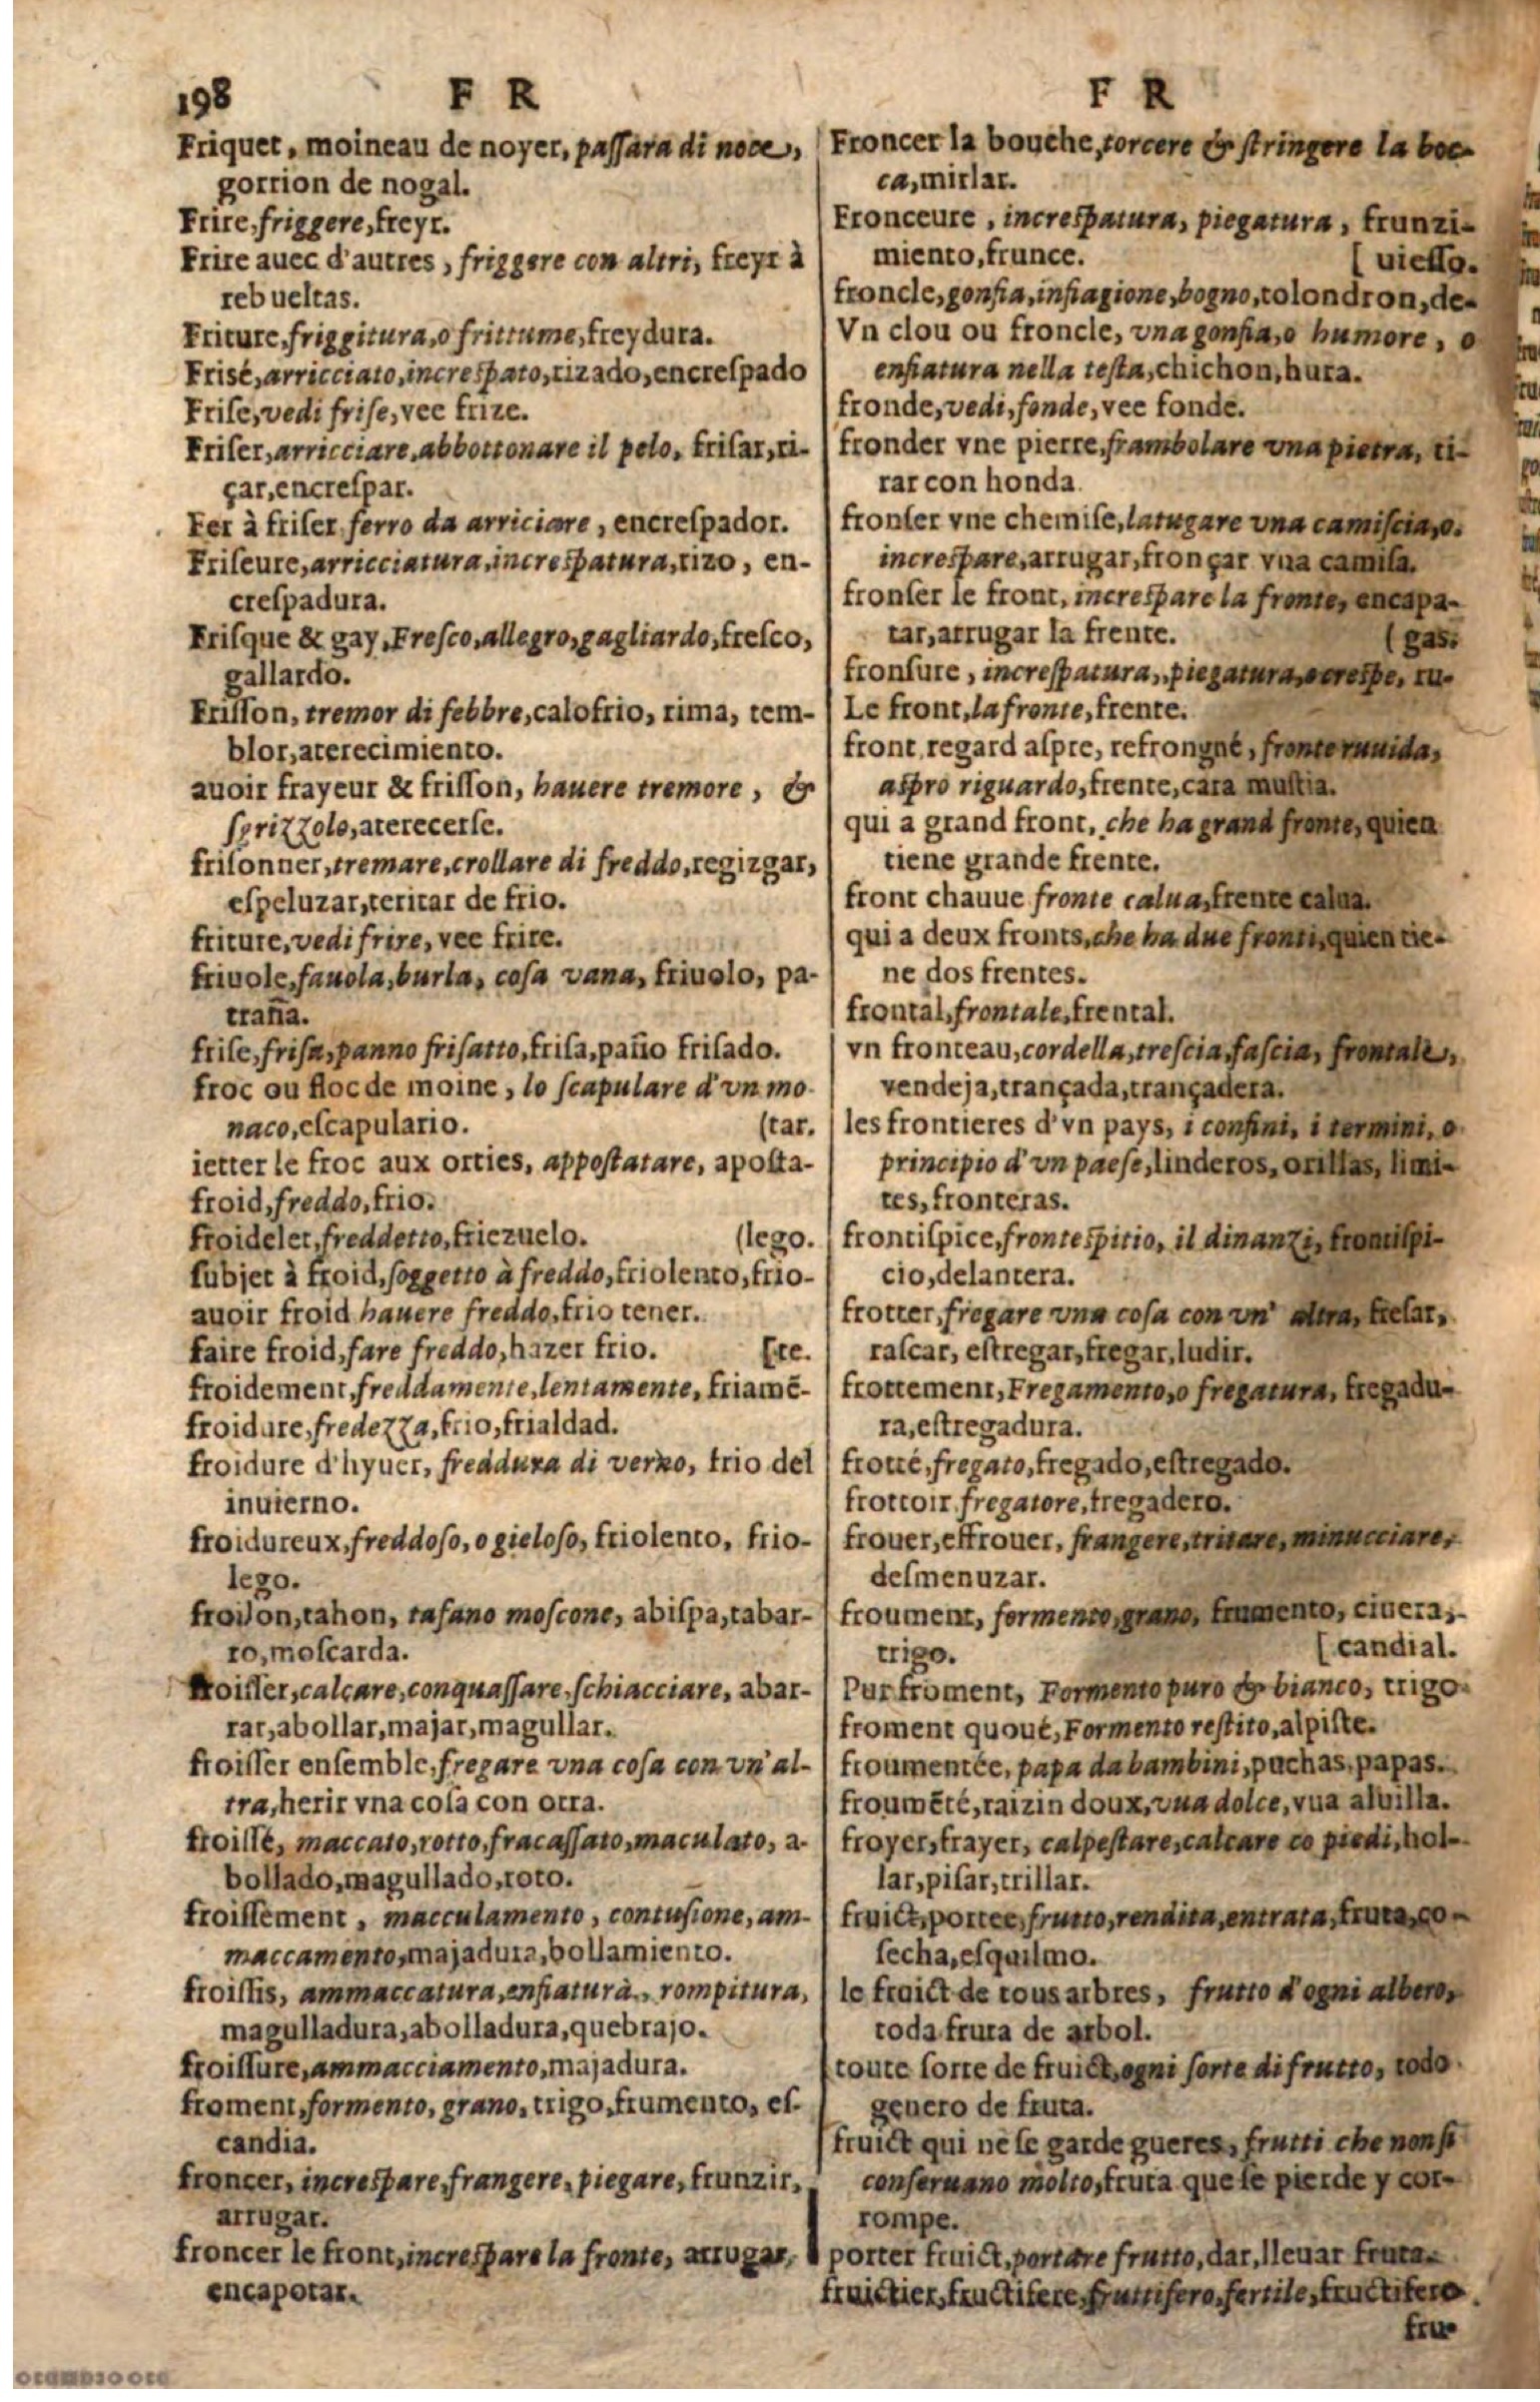 198 F R
Friquet, moineau de noyer, paſſara di noce,
gorrion de nogal.
Frire, friggere, freyr.
Frire auec d'autres, friggere con altri, freyr à
rebueltas.
Friture, friggitura, o frittume, freydura.
Frisé, arricciato, increſpato, rizado, encreſpado
Friſe, vedi friſe, vee frize.
Friſer, arricciare, abbottonare il pelo, friſar, ri-
çar, encreſpar.
Fer à friſer ferro da arriciare, encreſpador.
Friſeure, arricciatura, increſpatura, rizo, en-
creſpadura.
Friſque & gay, Freſco, allegro, gagliardo, freſco,
gallardo.
Friſſon, tremor di febbre, calofrio, rima, tem-
blor, aterecimiento.
auoir frayeur & friſſon, hauere tremore, &
ſgrizzolo, aterecerſe.
friſonner, tremare, crollare di freddo, regizgar,
eſpeluzar, teritar de frio.
friture, vedi frire, vee frire.
friuole, fauola, burla, coſa vana, friuolo, pa-
traña.
friſe, friſa, panno friſatto, friſa, paño friſado.
froc ou floc de moine, lo ſcapulare d'vn mo-
naco, eſcapulario. (tar.
ietter le froc aux orties, appoſtatare, apoſta-
froid, freddo, frio.
froidelet, freddetto, friezuelo. (lego.
ſubjet à froid, ſoggetto à freddo, friolento, frio-
auoir froid hauere freddo, frio tener.
faire froid, fare freddo, hazer frio. [te.
froidement, freddamente, lentamente, friamẽ-
froidure, fredezza, frio, frialdad.
froidure d'hyuer, freddura di verno, frio del
inuierno.
froidureux, freddoſo, o gieloſo, friolento, frio-
lego.
froiſon, tahon, tafano moſcone, abiſpa, tabar-
ro, moſcarda.
froiſſer, calcare, conquaſſare, ſchiacciare, abar-
rar, abollar, majar, magullar.
froiſſer enſemble, fregare vna coſa con vn'al-
tra, herir vna coſa con otra.
froiſſé, maccato, rotto, fracaſſato, maculato, a-
bollado, magullado, roto.
froiſſement, macculamento, contuſione, am-
maccamento, majadura, bollamiento.
froiſſis, ammaccatura, enfiaturà, rompitura,
magulladura, abolladura, quebrajo.
froiſſure, ammacciamento, majadura.
froment, formento, grano, trigo, frumento, eſ-
candia.
froncer, increſpare, frangere, piegare, frunzir,
arrugar.
froncer le front, increſpare la fronte, arrugar,
encapotar.
F R
Froncer la bouche, torcere & ſtringere la boc-
ca, mirlar.
Fronceure, increſpatura, piegatura, frunzi-
miento, frunce. [ uieſſo.
froncle, gonfia, infiagione, bogno, tolondron, de-
Vn clou ou froncle, vna gonfia, o humore, o
enfiatura nella teſta, chichon, hura.
fronde, vedi, fonde, vee fonde.
fronder vne pierre, frambolare vna pietra, ti-
rar con honda.
fronſer vne chemiſe, latugare vna camiſcia, o.
increſpare, arrugar, fronçar vna camiſa.
fronſer le front, increſpare la fronte, encapa-
tar, arrugar la frente. (gas.
fronſure, increſpatura, piegatura, o creſpe, ru-
Le front, la fronte, frente.
front, regard aſpre, refrongné, fronte ruuida,
aſpro riguardo, frente, cara muſtia.
qui a grand front, che ha grand fronte, quien
tiene grande frente.
front chauue fronte calua, frente calua.
qui a deux fronts, che ha due fronti, quien tie-
ne dos frentes.
frontal, frontale, frental.
vn fronteau, cordella, treſcia, faſcia, frontale,
vendeja, trançada, trançadera.
les frontieres d'vn pays, i confini, i termini, o
principio d'vn paeſe, linderos, orillas, limi-
tes, fronteras.
frontiſpice, fronteſpitio, il dinanzi, frontiſpi-
cio, delantera.
frotter, fregare vna coſa con vn' altra, freſar,
raſcar, eſtregar, fregar, ludir.
frottement, Fregamento, o fregatura, fregadu-
ra, eſtregadura.
frotté, fregato, fregado, eſtregado.
frottoir, fregatore, fregadero.
frouer, effrouer, frangere, tritare, minucciare,
deſmenuzar.
froument, formento, grano, frumento, ciuera,
trigo. [ candial.
Pur froment, Formento puro & bianco, trigo
froment quoué, Formento reſtito, alpiſte.
froumentée, papa da bambini, puchas, papas.
froumẽté, raizin doux, vua dolce, vua aluilla.
froyer, frayer, calpeſtare, calcare co piedi, hol-
lar, piſar, trillar.
fruict, portee, frutto, rendita, entrata, fruta, co-
ſecha, eſquilmo.
le fruict de tous arbres, frutto d'ogni albero,
toda fruta de arbol.
toute ſorte de fruict, ogni ſorte di frutto, todo
genero de fruta.
fruict qui ne ſe garde gueres, frutti che non ſi
conſeruano molto, fruta que ſe pierde y cor-
rompe.
porter fruict, portare frutto, dar, lleuar fruta.
fruictier, fructifere, fruttifero, fertile, fructifero
fru-